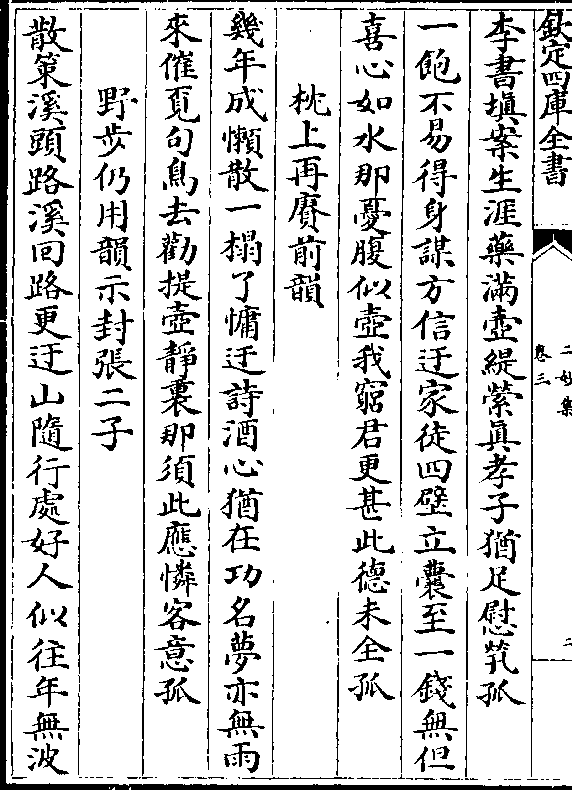 欽定四庫全書
二妙集
卷三
二
李書塡案生涯藥滿壺緹縈真孝子猶足慰煢孤
一飽不易得身謀方信迂家徒四壁立囊至一錢無但
喜心如水那憂腹似壺我窮君更甚此德未全孤
枕上再賡前韻
幾年成懶散一榻了慵迂詩酒心猶在功名夢亦無雨
來催覓句鳥去勸提壺靜裏那須此應憐客意孤
野步仍用韻示封張二子
散策溪頭路溪回路更迂山隨行處好人似往年無波